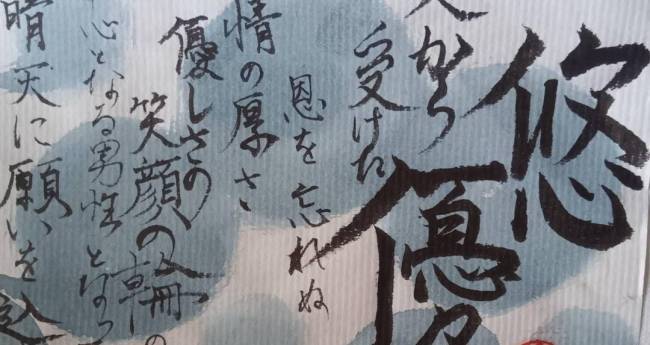 悠
優
人から
受けた
恩を忘れぬ
情の厚さ
優しさの
笑顔の輪の
心となる男性となっ
晴天に願いを込